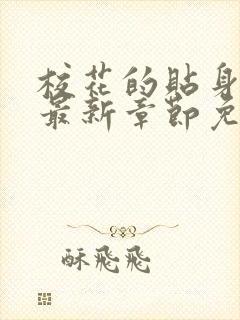 校花的貼身
最新章節免
酥飛飛